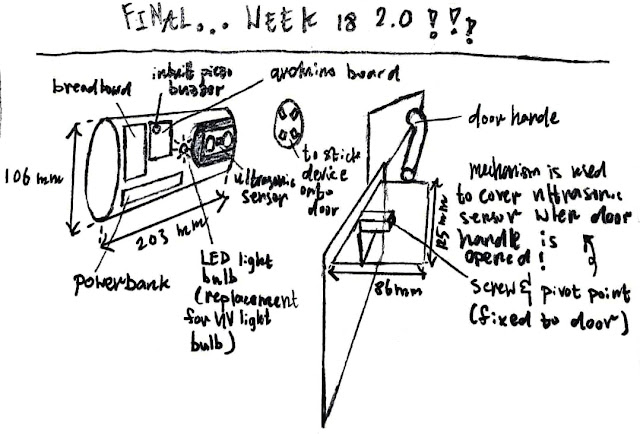 FINAL... WEEK 18 2.0 !!!
breadboard
inbuilt piezo
buzzer
arduino board
106 mm
203 mm
powerbank
LED light
bulb
(replacement
for UV light
bulb)
ultrasonic
sensor
to stick
device
onto
door
door handle
mechanism is used
to cover ultrasonic
sensor when door
handle is
opened!
125 mm
86mm
screw & pivot point
(fixed to door)